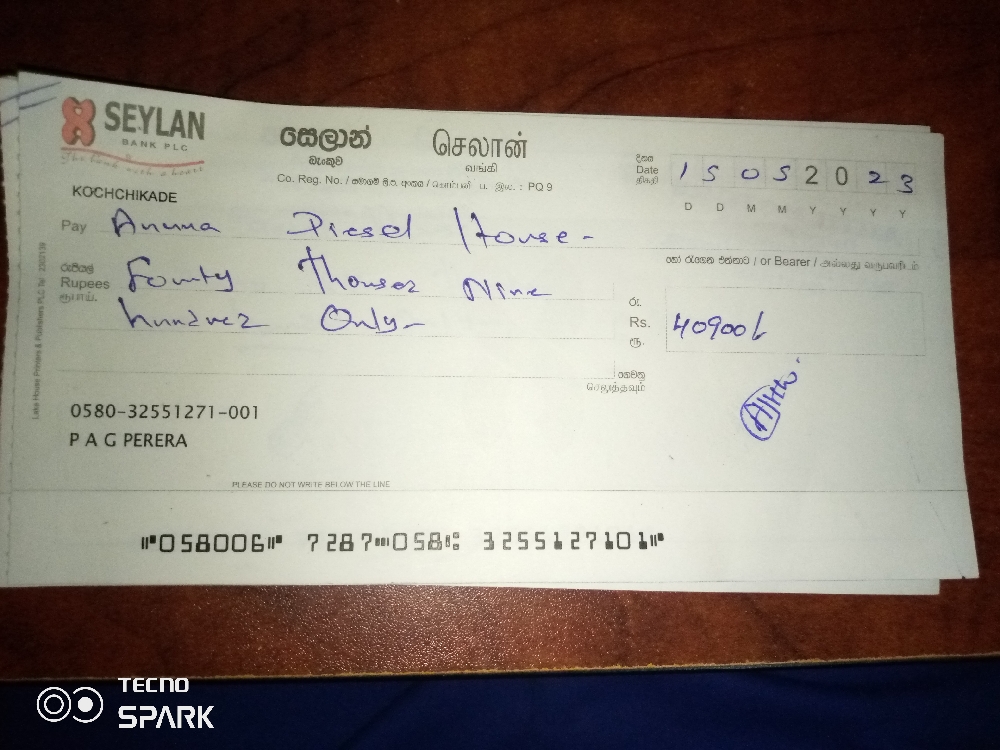 SEYLAN
BANK PLC
the bank with a heart
සෙලාන්
බැංකුව
செலான்
வங்கி
Co. Reg. No. / සමාගම් ලි.ප. අංකය / கொம்பனி ப. இல. : PQ 9
දිනය
Date
திகதி
15 05 2023
D D M M Y Y Y Y
KOCHCHIKADE
Pay Anuna Diesel House-
හෝ රැගෙන එන්නාට / or Bearer / அல்லது வருபவரிடம்
රුපියල්
Rupees
ரூபாய்.
Founty Thousez Nine
hundrez Only-
රු.
Rs.
ரூ.
40900/-
ගෙවනු
செலுத்தவும்
0580-32551271-001
P A G PERERA
PLEASE DO NOT WRITE BELOW THE LINE
⑈058006⑈ 7287⑉058⑆ 3255127101⑈
Lake House Printers & Publishers PLC Tel: 2302139
TECNO
SPARK